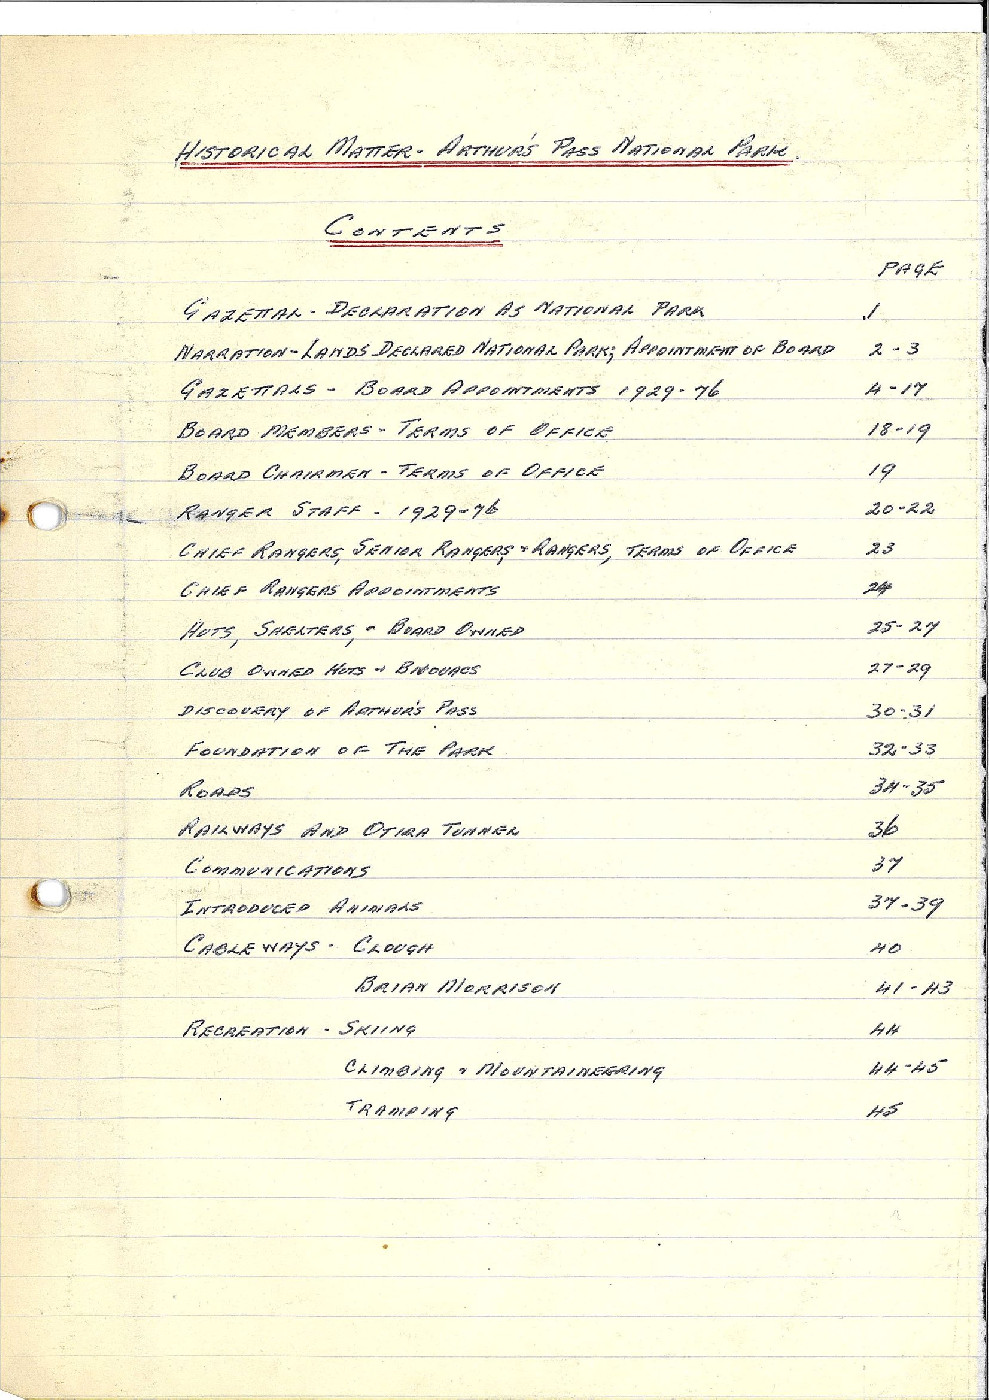 HISTORICAL MATTER - ARTHUR'S PASS NATIONAL PARK.
CONTENTS
PAGE
GAZETTAL - DECLARATION AS NATIONAL PARK 1
NARRATION - LANDS DECLARED NATIONAL PARK; APPOINTMENT OF BOARD 2 - 3
GAZETTALS - BOARD APPOINTMENTS 1929 - 76 4 - 17
BOARD MEMBERS - TERMS OF OFFICE 18 - 19
BOARD CHAIRMEN - TERMS OF OFFICE 19
RANGER STAFF - 1929 - 76 20 - 22
CHIEF RANGERS, SENIOR RANGERS, + RANGERS, TERMS OF OFFICE 23
CHIEF RANGERS APPOINTMENTS 24
HUTS, SHELTERS, - BOARD OWNED 25 - 27
CLUB OWNED HUTS + BIVOUACS 27 - 29
DISCOVERY OF ARTHUR'S PASS 30 - 31
FOUNDATION OF THE PARK 32 - 33
ROADS 34 - 35
RAILWAYS AND OTIRA TUNNEL 36
COMMUNICATIONS 37
INTRODUCED ANIMALS 37 - 39
CABLEWAYS - CLOUGH 40
BRIAN MORRISON 41 - 43
RECREATION - SKIING 44
CLIMBING + MOUNTAINEERING 44 - 45
TRAMPING 45